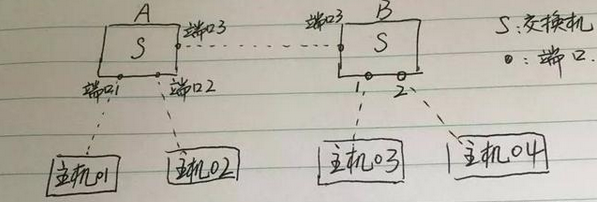 A
B
S
S
端口3
端口3
S:交换机
•:端口.
端口1
端口2
1
2
主机01
主机02
主机03
主机04